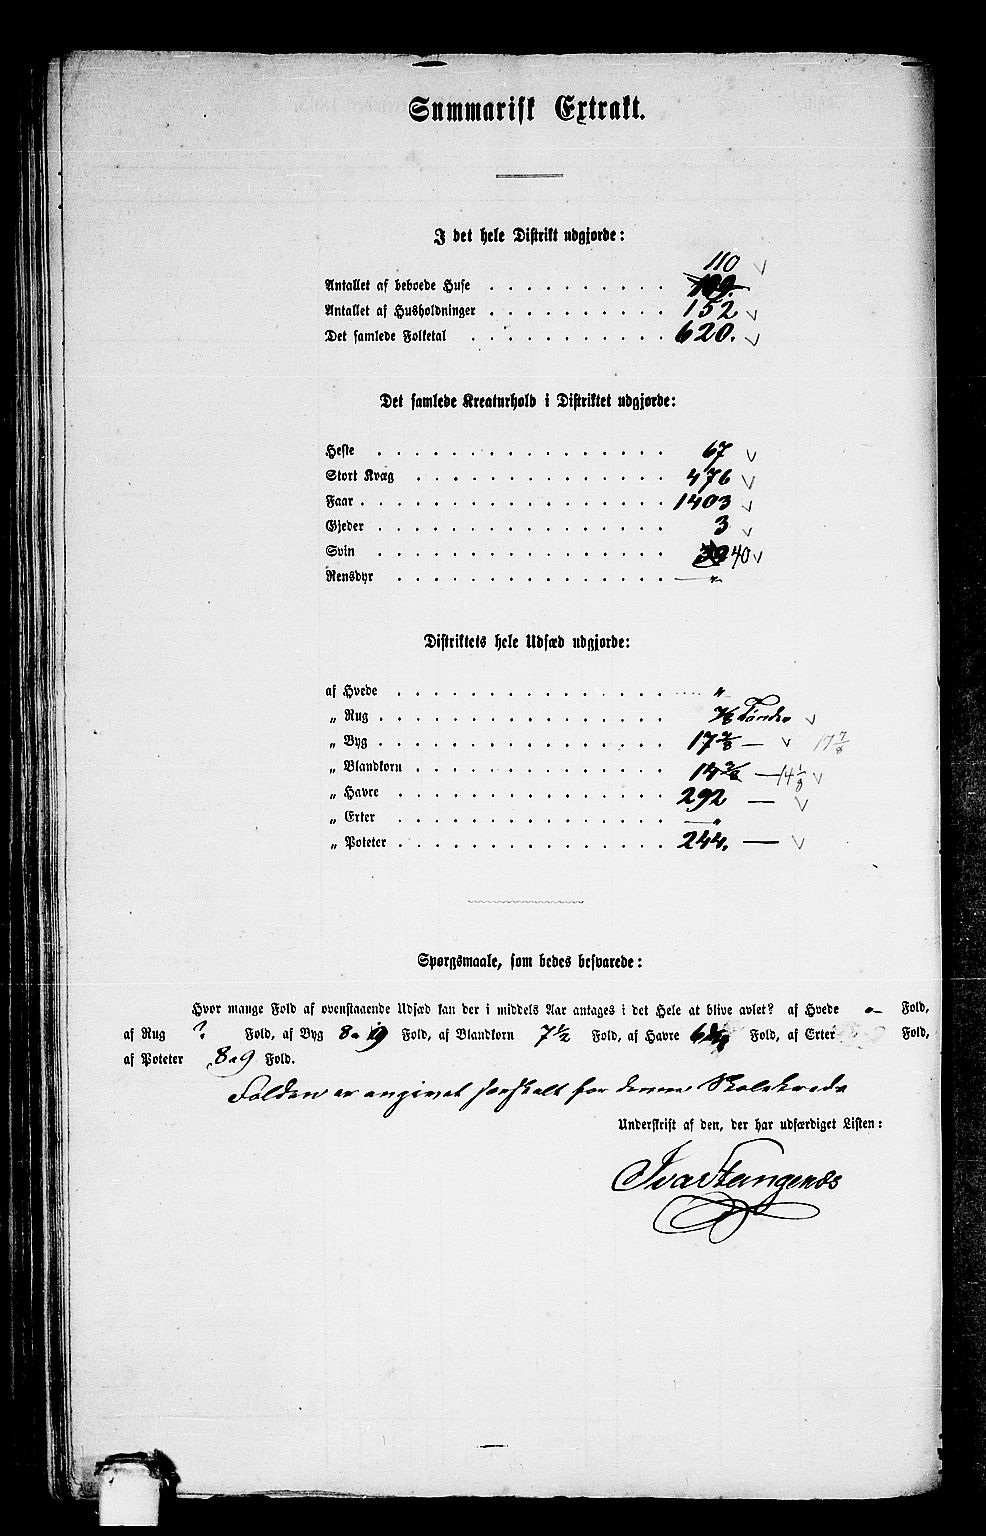 Summarisk Extrakt.
I det hele Distrikt udgjorde:
110
Antallet af beboede Huse 109.
Antallet af Husholdninger 152
Det samlede Folketal 620.
Det samlede Kreaturhold i Distriktet udgjorde:
Heste 67
Stort Kvæg 476
Faar 1403
Gjeder 3
Svin 39 40
Rensdyr — „
Distriktets hele Udsæd udgjorde:
af Hvede „
„ Rug Tønder
„ Byg 17 7/8 — 17 7/8
„ Blandkorn — 14 1/8
„ Havre 292 —
„ Erter — „
„ Poteter 244. —
Spørgsmaale, som bedes besvarede:
Hvor mange Fold af ovenstaaende Udsæd kan der i middels Aar antages i det Hele at blive avlet? af Hvede Fold,
af Rug ? Fold, af Byg 8 a 9 Fold, af Blandkorn 7 1/2 Fold, af Havre 6 Fold, af Erter Fold,
af Poteter 8 a 9 Fold.
Folden er angivet særskilt for denne Skolekreds
Underskrift af den, der har udfærdiget Listen:
Ivar Stangenæs